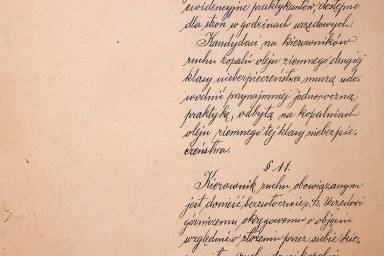 ewidencyjne praktykantów, dostępne
dla stron w godzinach urzędowych.
Kandydaci na kierowników
ruchu kopalń oleju ziemnego drugiej
klasy niebezpieczeństwa muszą udo-
wodnić przynajmniej jednoroczną
praktykę, odbytą na kopalniach
oleju ziemnego tej klasy niebezpie-
czeństwa.
§ 11.
Kierownik ruchu obowiązanym
jest donieść bezzwłocznie c. k. Urzędowi
górniczemu okręgowemu o objęciu
względnie o złożeniu przez siebie kie-